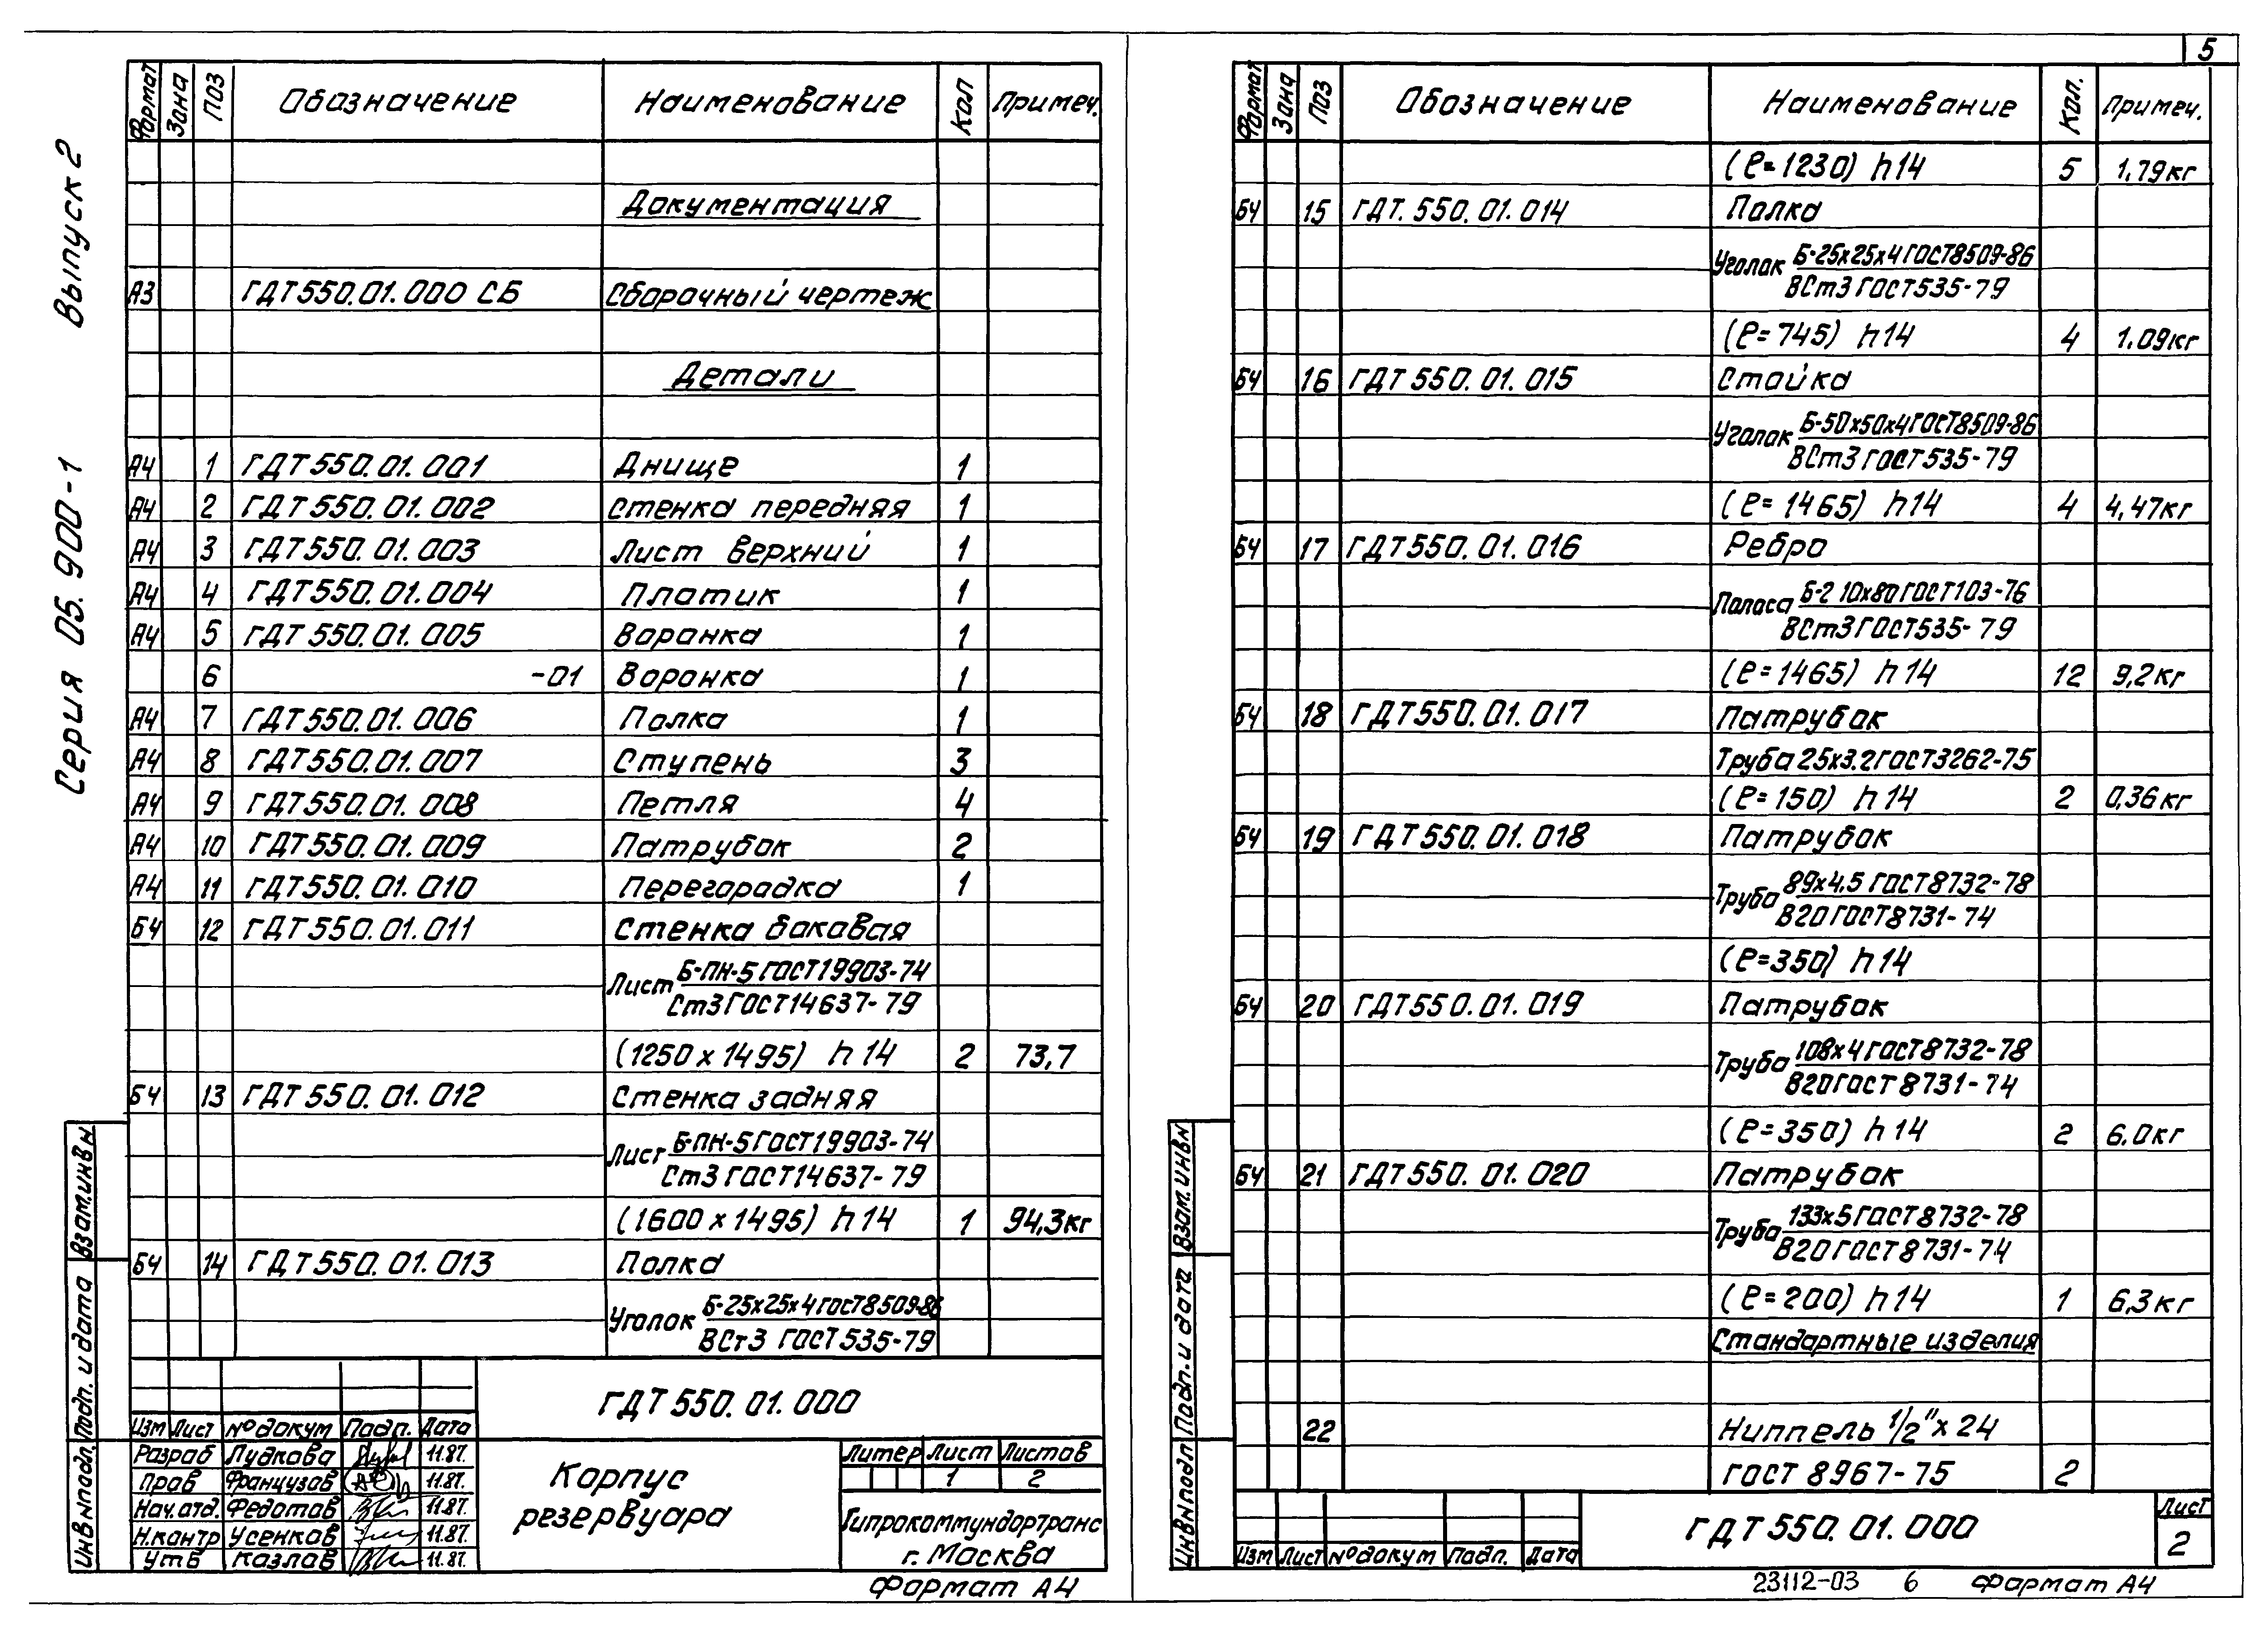 5
Выпуск 2
Серия 05.900-1
Формат Зона Поз Обозначение Наименование Кол Примеч.
Документация
А3 ГДТ550.01.000 СБ Сборочный чертеж
Детали
А4 1 ГДТ550.01.001 Днище 1
А4 2 ГДТ550.01.002 Стенка передняя 1
А4 3 ГДТ550.01.003 Лист верхний 1
А4 4 ГДТ550.01.004 Платик 1
А4 5 ГДТ550.01.005 Воронка 1
6 -01 Воронка 1
А4 7 ГДТ550.01.006 Полка 1
А4 8 ГДТ550.01.007 Ступень 3
А4 9 ГДТ550.01.008 Петля 4
А4 10 ГДТ550.01.009 Патрубок 2
А4 11 ГДТ550.01.010 Перегородка 1
БЧ 12 ГДТ550.01.011 Стенка боковая
Б-ПН-5 ГОСТ19903-74
Лист
Ст3 ГОСТ14637-79
(1250 х 1495) h14 2 73,7
БЧ 13 ГДТ550.01.012 Стенка задняя
Б-ПН-5 ГОСТ19903-74
Лист
Ст3 ГОСТ14637-79
(1600 х 1495) h14 1 94,3кг
БЧ 14 ГДТ550.01.013 Полка
Б-25х25х4 ГОСТ8509-86
Уголок
ВСт3 ГОСТ535-79
Взам.инв№
Подп. и дата
Инв№подл.
ГДТ550.01.000
Изм Лист №докум Подп. Дата
Разраб Лудкова 11.87.
Пров Французов 11.87.
Нач.отд. Федотов 11.87.
Н.контр Усенков 11.87.
Утв Козлов 11.87.
Корпус
резервуара
Литер Лист Листов
1 2
Гипрокоммундортранс
г. Москва
Формат А4
Формат Зона Поз Обозначение Наименование Кол. Примеч.
(ℓ=1230) h14 5 1,79кг
БЧ 15 ГДТ.550.01.014 Полка
Б-25х25х4 ГОСТ8509-86
Уголок
ВСт3 ГОСТ535-79
(ℓ=745) h14 4 1.09кг
БЧ 16 ГДТ550.01.015 Стойка
Б-50х50х4 ГОСТ8509-86
Уголок
ВСт3 ГОСТ535-79
(ℓ=1465) h14 4 4,47кг
БЧ 17 ГДТ550.01.016 Ребро
Б-2 10х80 ГОСТ103-76
Полоса
ВСт3 ГОСТ535-79
(ℓ=1465) h14 12 9,2кг
БЧ 18 ГДТ550.01.017 Патрубок
Труба 25х3.2 ГОСТ3262-75
(ℓ=150) h14 2 0,36кг
БЧ 19 ГДТ550.01.018 Патрубок
89х4,5 ГОСТ8732-78
Труба
В20 ГОСТ8731-74
(ℓ=350) h14
БЧ 20 ГДТ550.01.019 Патрубок
108х4 ГОСТ8732-78
Труба
В20 ГОСТ8731-74
(ℓ=350) h14 2 6,0кг
БЧ 21 ГДТ550.01.020 Патрубок
133х5 ГОСТ8732-78
Труба
В20 ГОСТ8731-74
(ℓ=200) h14 1 6,3кг
Стандартные изделия
22 Ниппель 1/2"х24
ГОСТ 8967-75 2
Взам.инв№
Подп. и дата
Инв№подл
ГДТ550.01.000
Лист
2
Изм Лист №докум Подп. Дата
23112-03 6 Формат А4